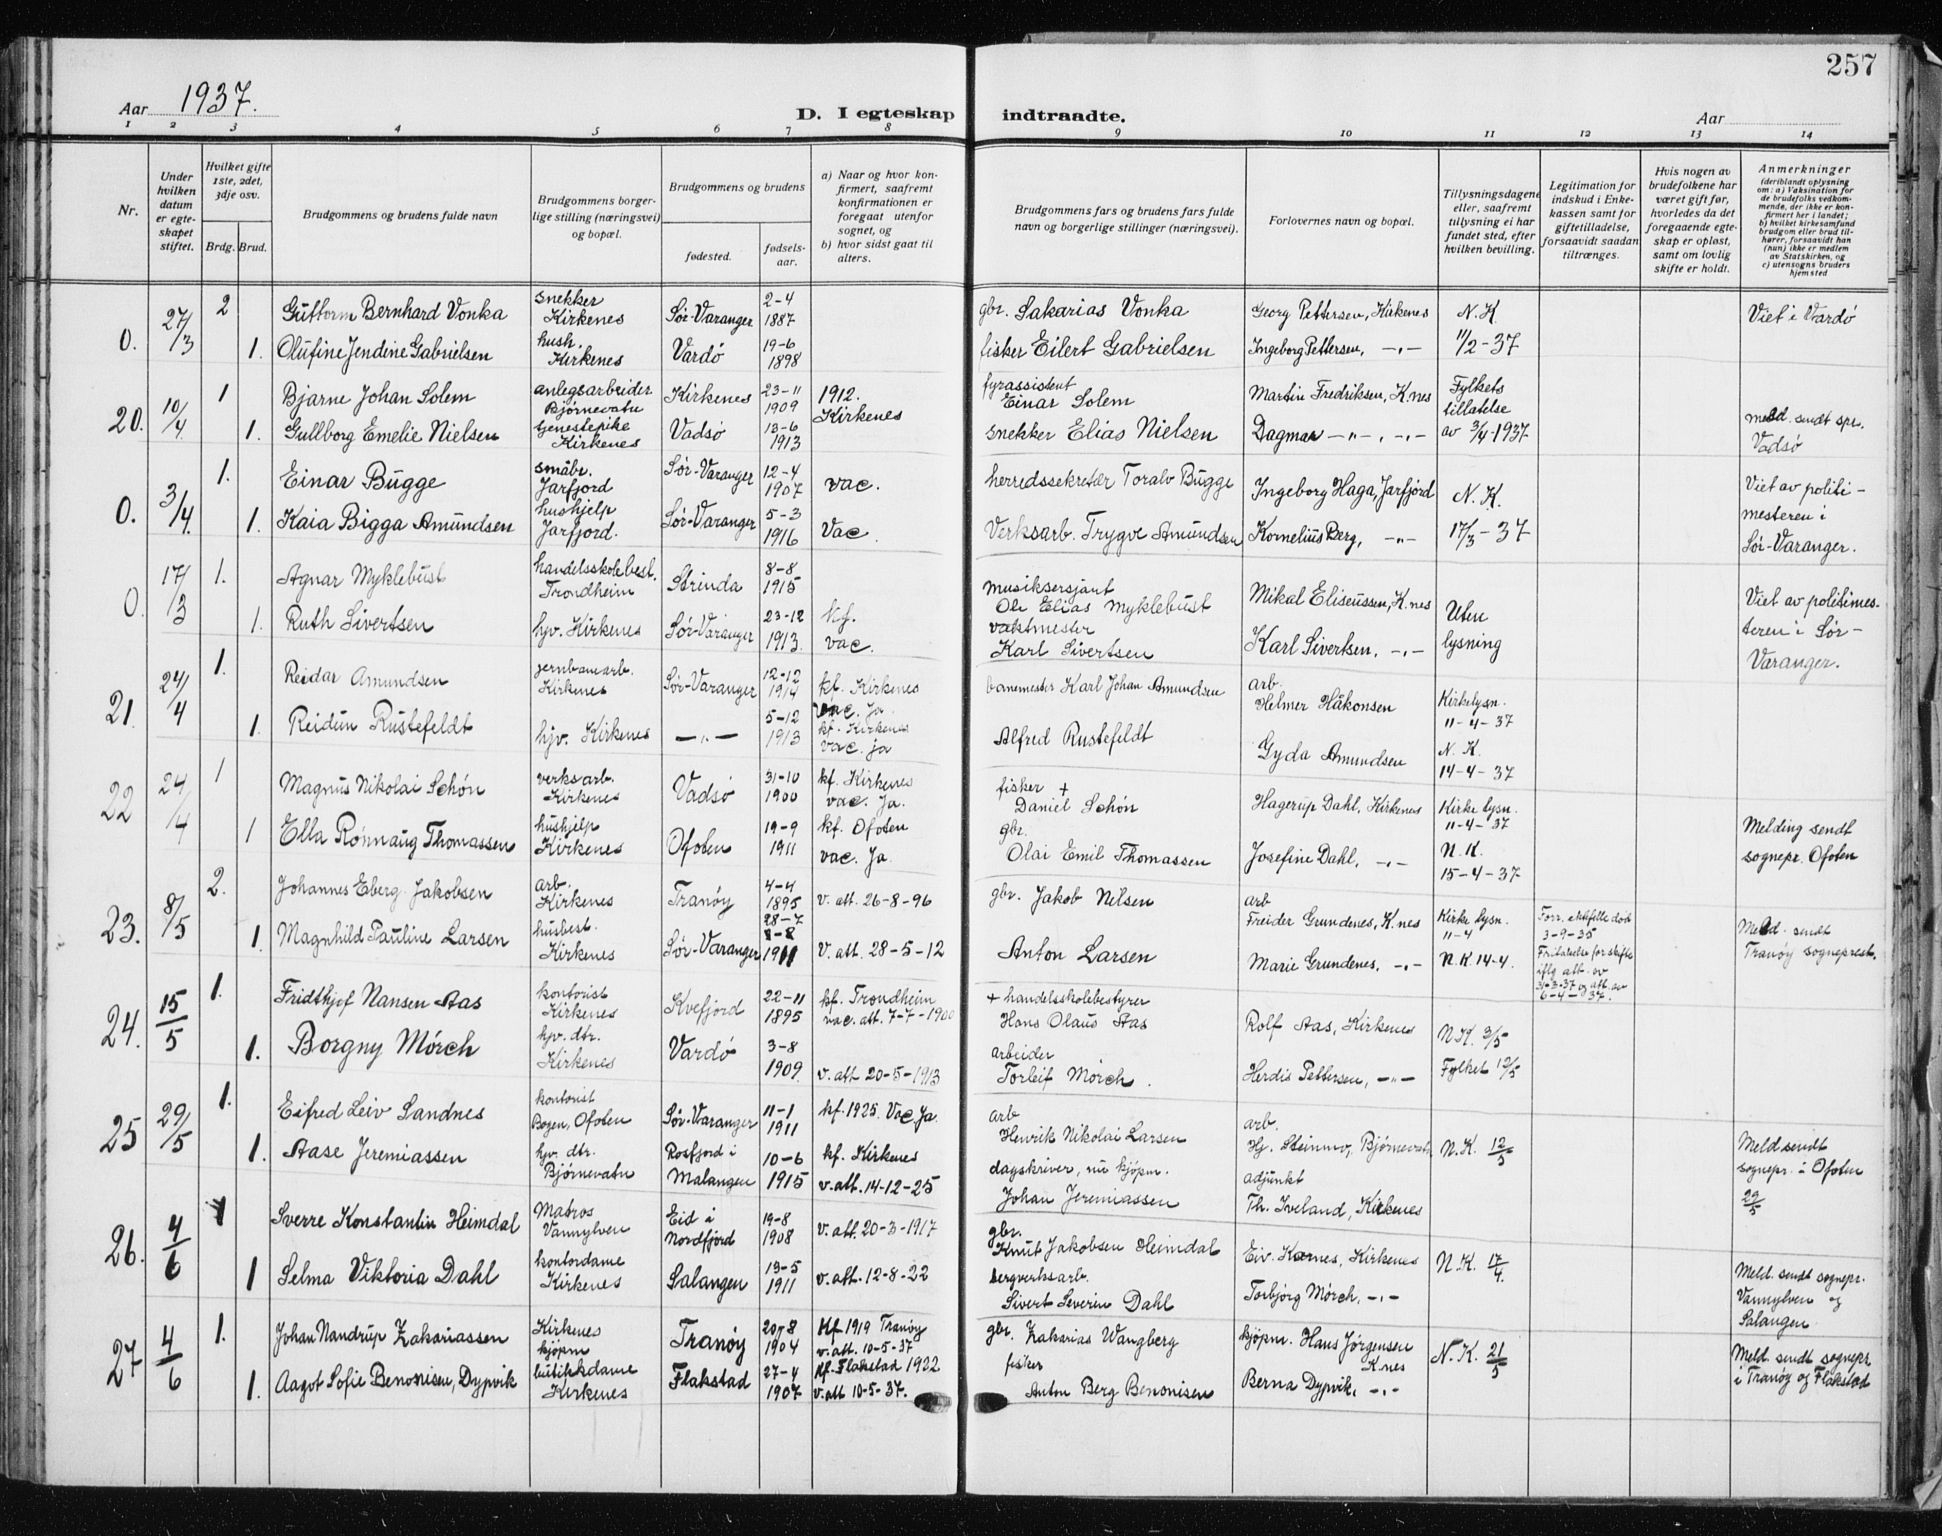 257
Aar 1937.
D. I egteskap indtraadte.
Aar
1 2 3 4 5 6 7 8 9 10 11 12 13 14
Nr.
Under hvilken datum er egteskapet stiftet.
Hvilket gifte 1ste, 2det, 3dje osv.
Brdg. Brud.
Brudgommens og brudens fulde navn
Brudgommens borgerlige stilling (næringsvei) og bopæl.
Brudgommens og brudens
fødested.
fødselsaar.
a) Naar og hvor konfirmert, saafremt konfirmationen er foregaat utenfor sognet, og
b) hvor sidst gaat til alters.
Brudgommens fars og brudens fars fulde navn og borgerlige stillinger (næringsvei).
Forlovernes navn og bopæl.
Tillysningsdagene eller, saafremt tillysning ei har fundet sted, efter hvilken bevilling.
Legitimation for indskud i Enkekassen samt for giftetilladelse, forsaavidt saadan tiltrænges.
Hvis nogen av brudefolkene har været gift før, hvorledes da det foregaaende egteskap er opløst, samt om lovlig skifte er holdt.
Anmerkninger
(deriblandt oplysning om: a) Vaksination for de brudefolks vedkommende, der ikke er konfirmert her i landet; b) hvilket kirkesamfund brudgom eller brud tilhører, forsaavidt han (hun) ikke er medlem av Statskirken, og c) utensogns bruders hjemsted
0. 27/3 2 Guttorm Bernhard Vonka snekker Kirkenes Sør-Varanger 2-4 1887 gbr. Sakarias Vonka Georg Pettersen, Kirkenes N.K. Viet i Vardø
1. Olufine Jendine Gabrielsen hush. Kirkenes Vardø 19-6 1898 fisker Eilert Gabrielsen Ingeborg Pettersen, -„- 11/2-37
20. 10/4 1 Bjarne Johan Solem anlegsarbeider Bjørnevatn Kirkenes 23-11 1909 1912. Kirkenes fyrassistent Einar Solem Martin Fredriksen, K.nes Fylkets tillatelse
1. Gullborg Emelie Nielsen tjenestepike Kirkenes Vadsø 13-6 1913 snekker Elias Nielsen Dagmar -„-, -„- av 3/4-1937 meld. sendt spr. Vadsø
0. 3/4. 1. Einar Bugge småbr. Jarfjord Sør-Varanger 12-4 1907 vac. herredssekretær Toralv Bugge Ingeborg Haga, Jarfjord N.K. Viet av politimesteren i Sør-Varanger.
1. Kaia Bigga Amundsen hushjelp Jarfjord. Sør-Varanger 5-3 1916 Vac. Verksarb. Trygve Amundsen Kornelius Berg, -„- 17/3-37
0. 17/3 1. Agnar Myklebust handelsskolebest. Trondheim Strinda 8-8 1915 musiksersjant Ole Elias Myklebust Mikal Eliseussen, K.nes Uten lysning Viet av politimesteren i Sør-Varanger.
1. Ruth Sivertsen hjv. Kirkenes Sør-Varanger 23-12 1913. kf. vac. vaktmester Karl Sivertsen Karl Sivertsen, -„-
21. 24/4 1. Reidar Amundsen jernbanearb. Kirkenes Sør-Varanger 12-12 1914 kf. Kirkenes vac. Ja. banemester Karl Johan Amundsen arb. Helmer Håkonsen Kirkelysn. 11-4-37
1. Reidun Rustefeldt hjv. Kirkenes -„- 5-12 1913 kf. Kirkenes vac. ja Alfred Rustefeldt Gyda Amundsen N.K. 14-4-37
22 24/4 1 Magnus Nikolai Schøn verksarb. Kirkenes Vadsø 31-10 1900 kf. Kirkenes vac. Ja. fisker + Daniel Schøn Hagerup Dahl, Kirkenes Kirkelysn. 11-4-37
1 Ella Rønnaug Thomassen hushjelp Kirkenes Ofoten 19-9 1911 kf. Ofoten vac. Ja gbr. Olai Emil Thomassen Josefine Dahl, -„- N.K. 15-4-37 Melding sendt sognepr. Ofoten
23. 8/5 2. Johannes Eberg Jakobsen arb. Kirkenes Tranøy 4-4 1895 v. att. 26-8-96 gbr. Jakob Nilsen arb Freider Grundenes, K.nes Kirkelysn. 11-4
1. Magnhild Pauline Larsen husbest. Kirkenes Sør-Varanger 28-7 8-8 1911 v. att. 28-5-12 Anton Larsen Marie Grundenes, -„- N.K. 14-4. Forr. ektefelle død 3-9-35 Fritakelse for skifte iflg att. av 31-3-37 og att. av 6-4-37. Meld. sendt Tranøy sogneprest.
24. 15/5 1. Fridthjof Nansen Aas kontorist Kirkenes Kvefjord 22-11 1895 kf. Trondheim vac. att. 7-7-1900 + handelsskolebestyrer Hans Olaus Aas Rolf Aas, Kirkenes N.K. 3/5
1. Borgny Mórch hjv. dtr. Kirkenes Vardø 3-8 1909. v. att 20-5-1913 arbeider Torleif Mórch. Herdis Pettersen, -„- Fylket 12/5
25 29/5 1. Eifred Leiv Sandnes kontorist Bogen, Ofoten Sør-Varanger 11-1 1911 kf. 1925. Vac. Ja arb Henrik Nikolai Larsen arb. Hj. Steinmo, Bjørnevatn N.K. 12/5
1. Aase Jeremiassen hjv. dtr. Bjørnevatn Rosfjord i Malangen 10-6 1915 kf. Kirkenes v. att. 14-12-25 dagskriver, nu kjøpm. Johan Jeremiassen adjunkt Th. Iveland, Kirkenes Meld sendt sognepr. i Ofoten 29/5
26. 4/6 1 Sverre Konstantin Heimdal Matros Vannylven Eid i Nordfjord 19-8 1908 v. att. 20-3-1917 gbr. Knut Jakobsen Heimdal Eiv. Karnes, Kirkenes N.K. 17/4.
1 Selma Viktoria Dahl kontordame Kirkenes Salangen 13-5 1911 v. att. 12-8-22 bergverksarb. Sivert Severin Dahl Torbjørg Mórch, -„- Meld. sendt sognepr. Vannylven og Salangen
27 4/6 1. Johan Nandrup Zakariassen Kirkenes kjøpm Tranøy 20-8 1904 Kf 1919 Tranøy v. att. 10-5-37 gbr. Zakarias Wangberg kjøpm. Hans Jørgensen K.nes N.K. 21/5 Meld. sendt sognepr. i Tranøy og Flakstad
1. Aagot Sofie Benonisen, Dypvik butikkdame Kirkenes Flakstad 27-4 1907 kf. Flakstad 1922 v. att 10-5-37. fisker Anton Berg Benonisen Berna Dypvik, -„-